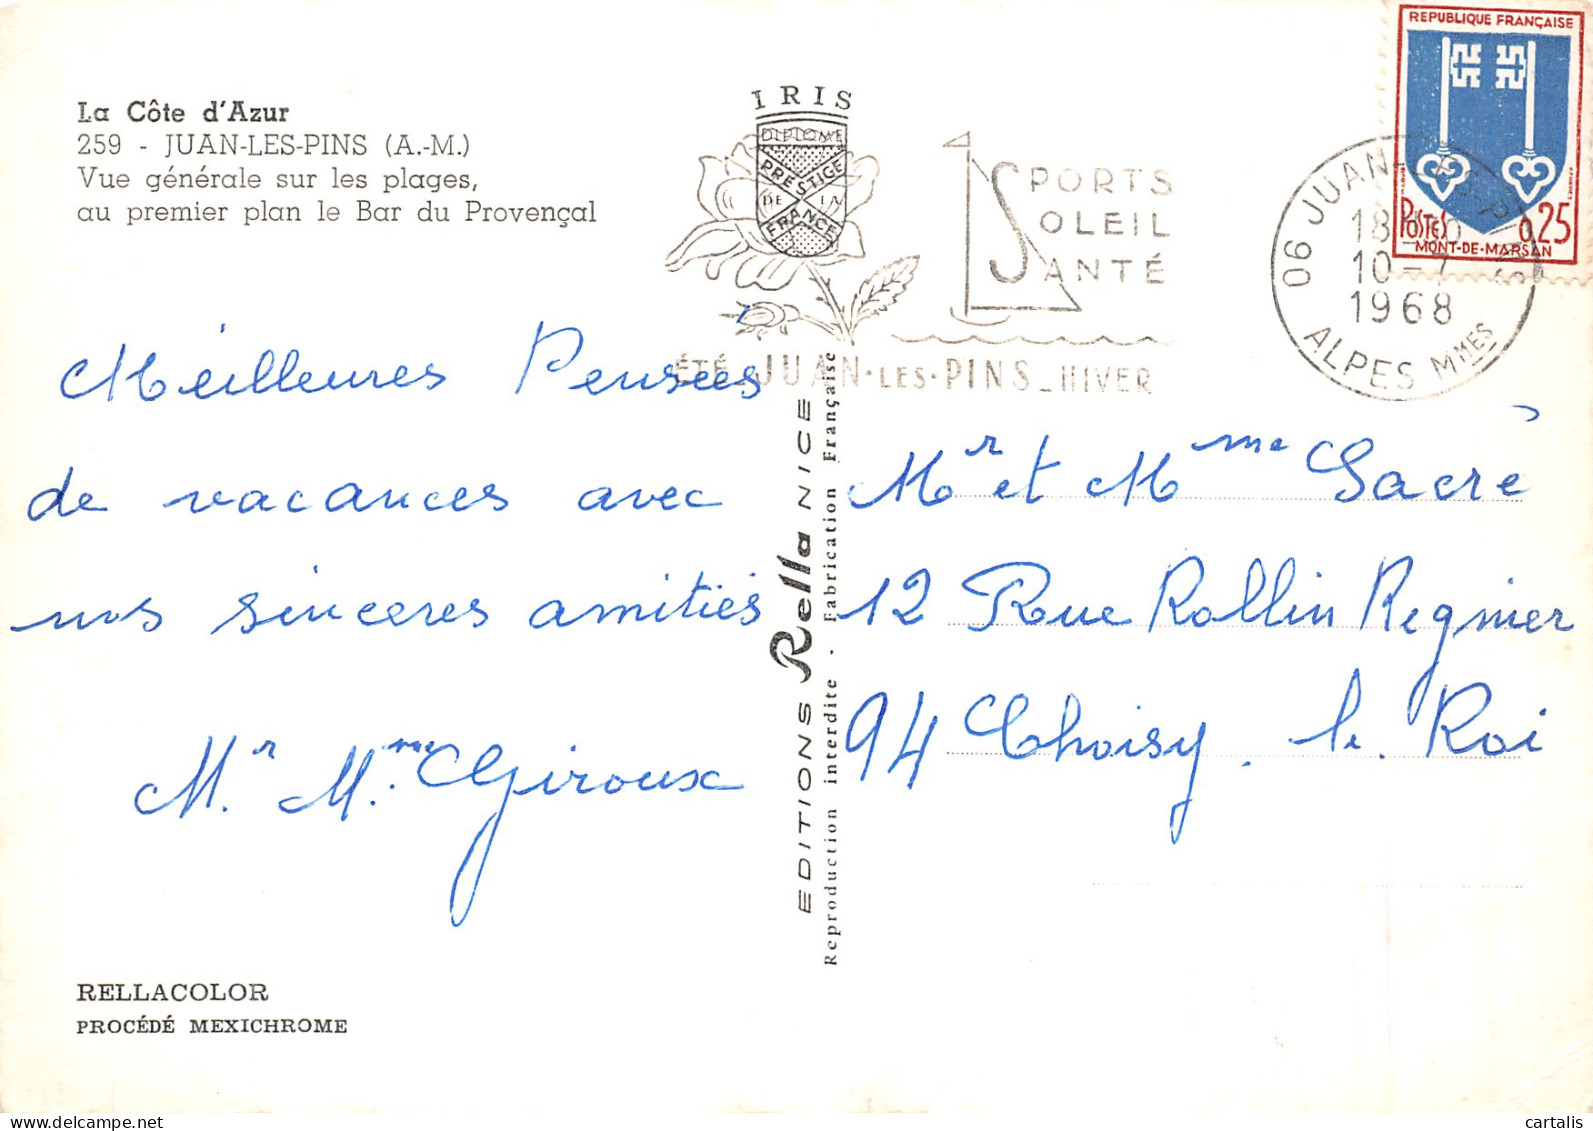 La Côte d'Azur
259 - JUAN-LES-PINS (A.-M.)
Vue générale sur les plages,
au premier plan le Bar du Provençal
IRIS
DIPLOME
PRESTIGE
DE LA
FRANCE
SPORTS
SOLEIL
SANTÉ
ÉTÉ - JUAN·LES·PINS - HIVER
REPUBLIQUE FRANÇAISE
POSTES 0,25
MONT-DE-MARSAN
06 JUAN-LES-PINS
10-7
1968
ALPES MMES
Meilleures Pensées
de vacances avec
nos sinceres amitiés
Mr. Mme Giroux
Mr et Mme Sacrè
12 Rue Rollin Regnier
94 Choisy. le. Roi
EDITIONS Rella NICE
Reproduction interdite - Fabrication Française
RELLACOLOR
PROCÉDÉ MEXICHROME
cartalis